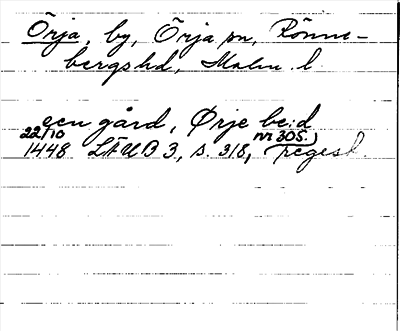 Örja, by, Örja sn, Rönne-
bergs hd, Malm. l.
een gård, Ørje be:d
22/10 nr 305.
1448 LÄUB 3, s. 318, (regest).